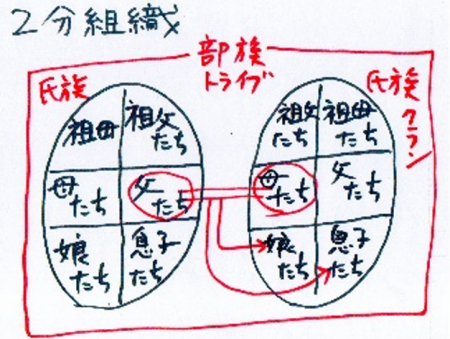 2分組織
部族
トライブ
氏族
氏族
クラン
祖母
祖父
たち
母
たち
父
たち
娘
たち
息子
たち
祖父
たち
祖母
たち
母
たち
父
たち
娘
たち
息子
たち